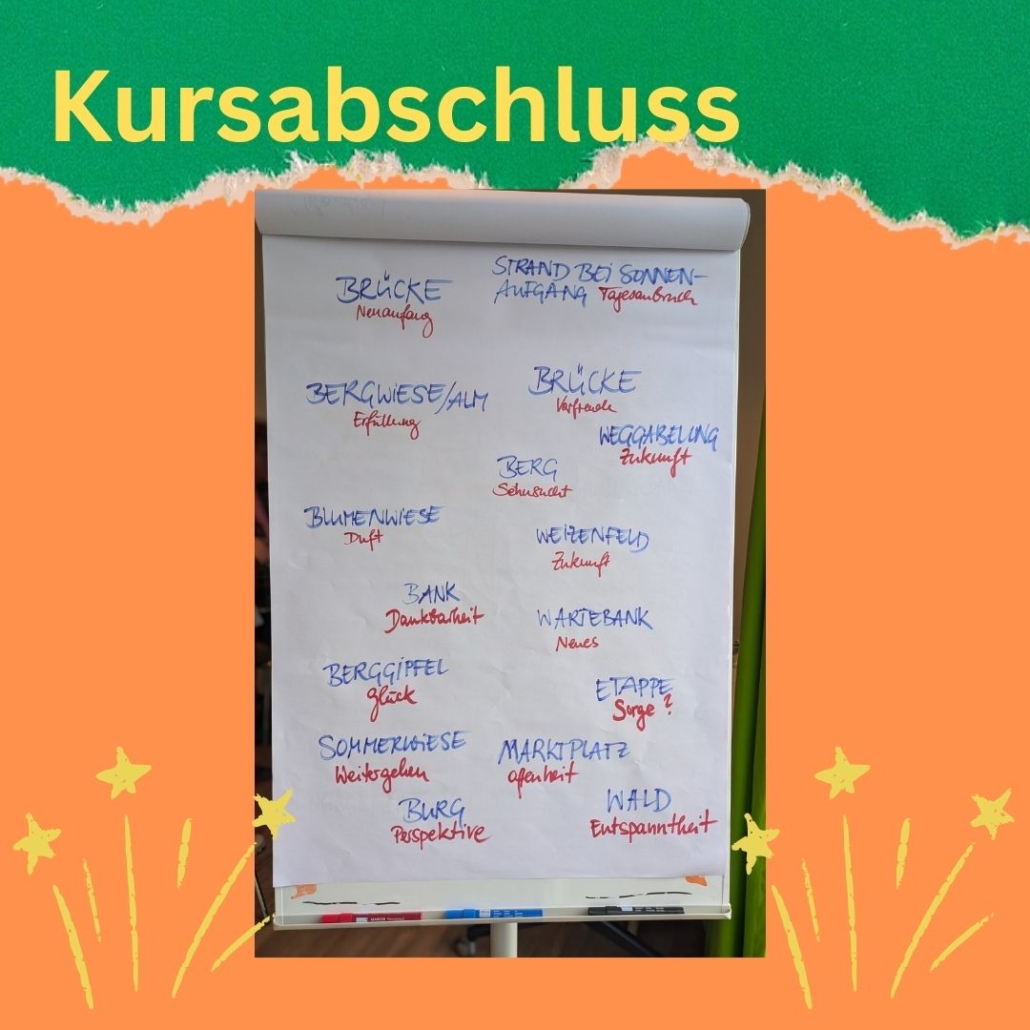 Kursabschluss
BRÜCKE
Neuanfang
STRAND BEI SONNEN-
AUFGANG Tagesanbruch
BERGWIESE/ALM
Erfüllung
BRÜCKE
Vorfreude
WEGGABELUNG
Zukunft
BERG
Sehnsucht
BLUMENWIESE
Duft
WEIZENFELD
Zukunft
BANK
Dankbarkeit
WARTEBANK
Neues
BERGGIPFEL
Glück
ETAPPE
Sorge?
SOMMERWIESE
Weitergehen
MARKTPLATZ
offenheit
BURG
Perspektive
WALD
Entspanntheit